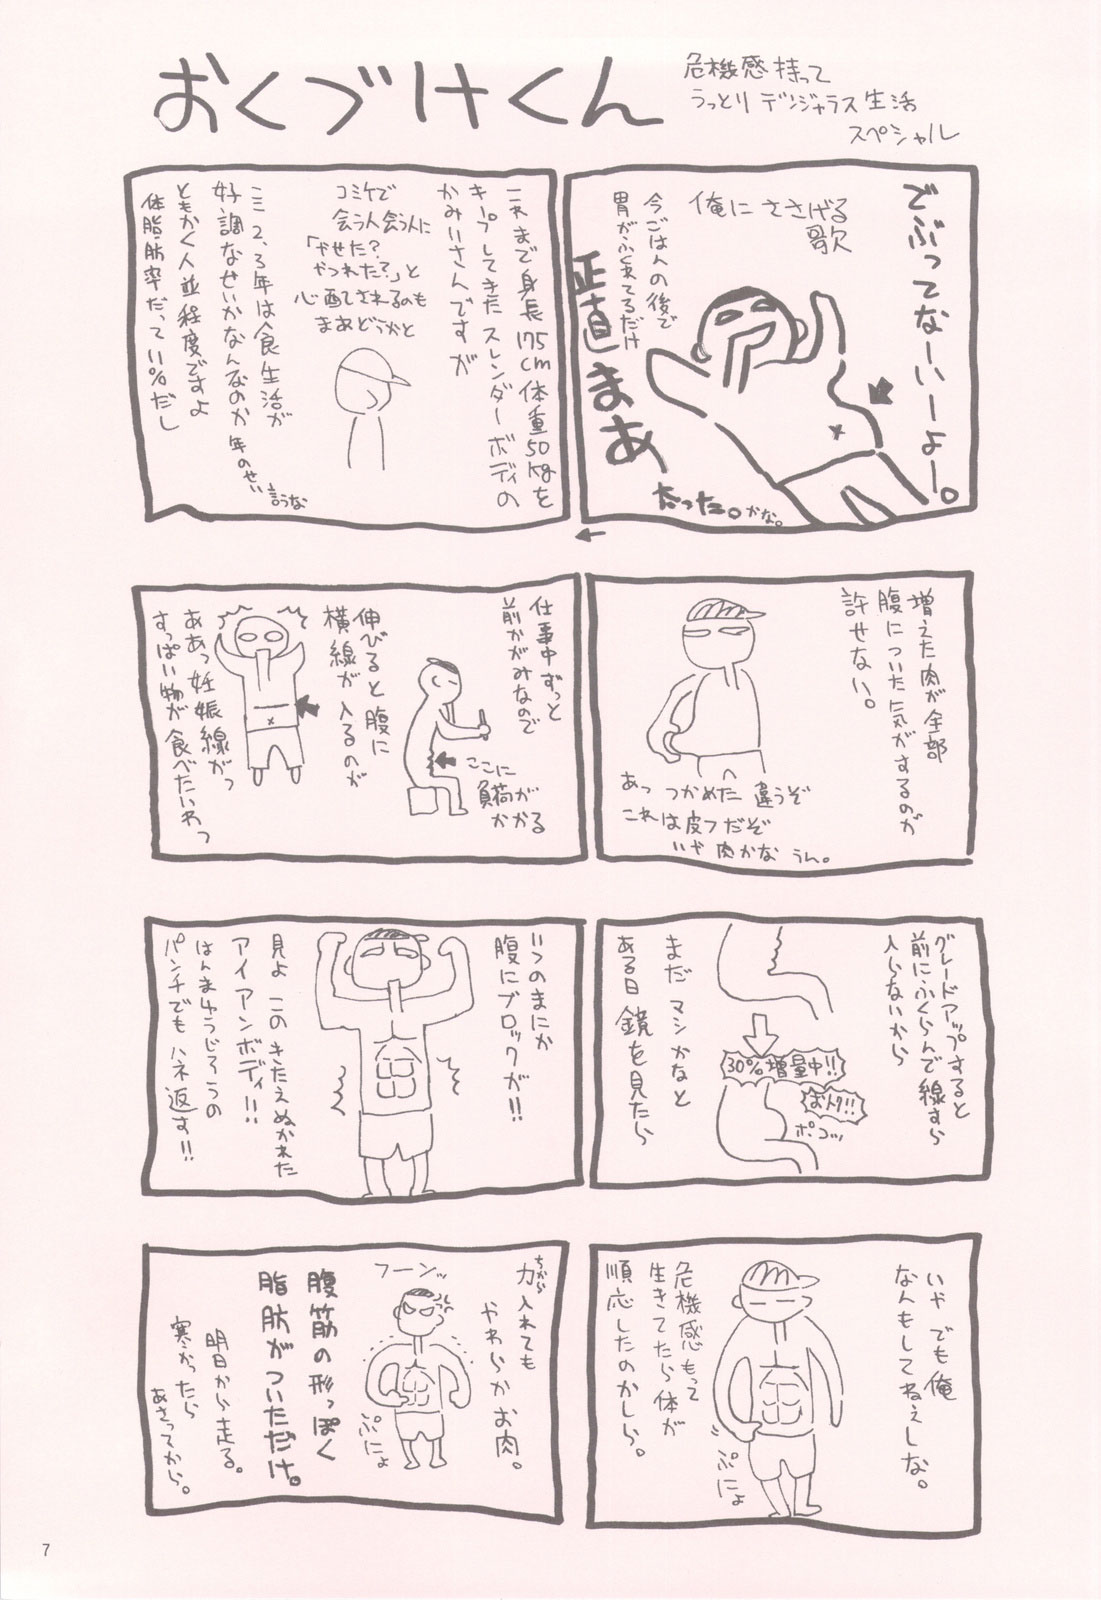 おくづけくん
危機感持って
うっとりデンジャラス生活
スペシャル
でぶってなーいーよー。
俺にささげる
歌
今ごはんの後で
胃がふくれてるだけ
正直まあ
太った。かな。
これまで身長175cm体重50kgを
キープしてきたスレンダーボディの
かみいさんですが
コミケで
会う人会う人に
「やせた?
やつれた?」と
心配されるのも
まあどうかと
ここ2、3年は食生活が
好調なせいかなんなのか年のせい
言うな
ともかく人並程度ですよ
体脂肪率だって11%だし
増えた肉が全部
腹についた気がするのが
許せない。
あっ つかめた 違うぞ
これは皮フだぞ
いや 肉かな うん。
仕事中ずっと
前かがみなので
ここに
負荷が
かかる
伸びると腹に
横線が入るのが
ああっ妊娠線がっ
すっぱい物が食べたいわっ
グレードアップすると
前にふくらんで線すら
入らないから
30%増量中!!
おトク!!
ポコッ
まだマシかなと
ある日鏡を見たら
いつのまにか
腹にブロックが!!
見よ このきたえぬかれた
アイアンボディ!!
はんまゆうじろうの
パンチでもハネ返す!!
いや でも俺
なんもしてねえしな。
危機感もって
生きてたら体が
順応したのかしら。
ぷにょ
ちから
力入れても
やわらかお肉。
フーンッ
ぷにょ
腹筋の形っぽく
脂肪がついただけ。
明日から走る。
寒かったら
あさってから。
7